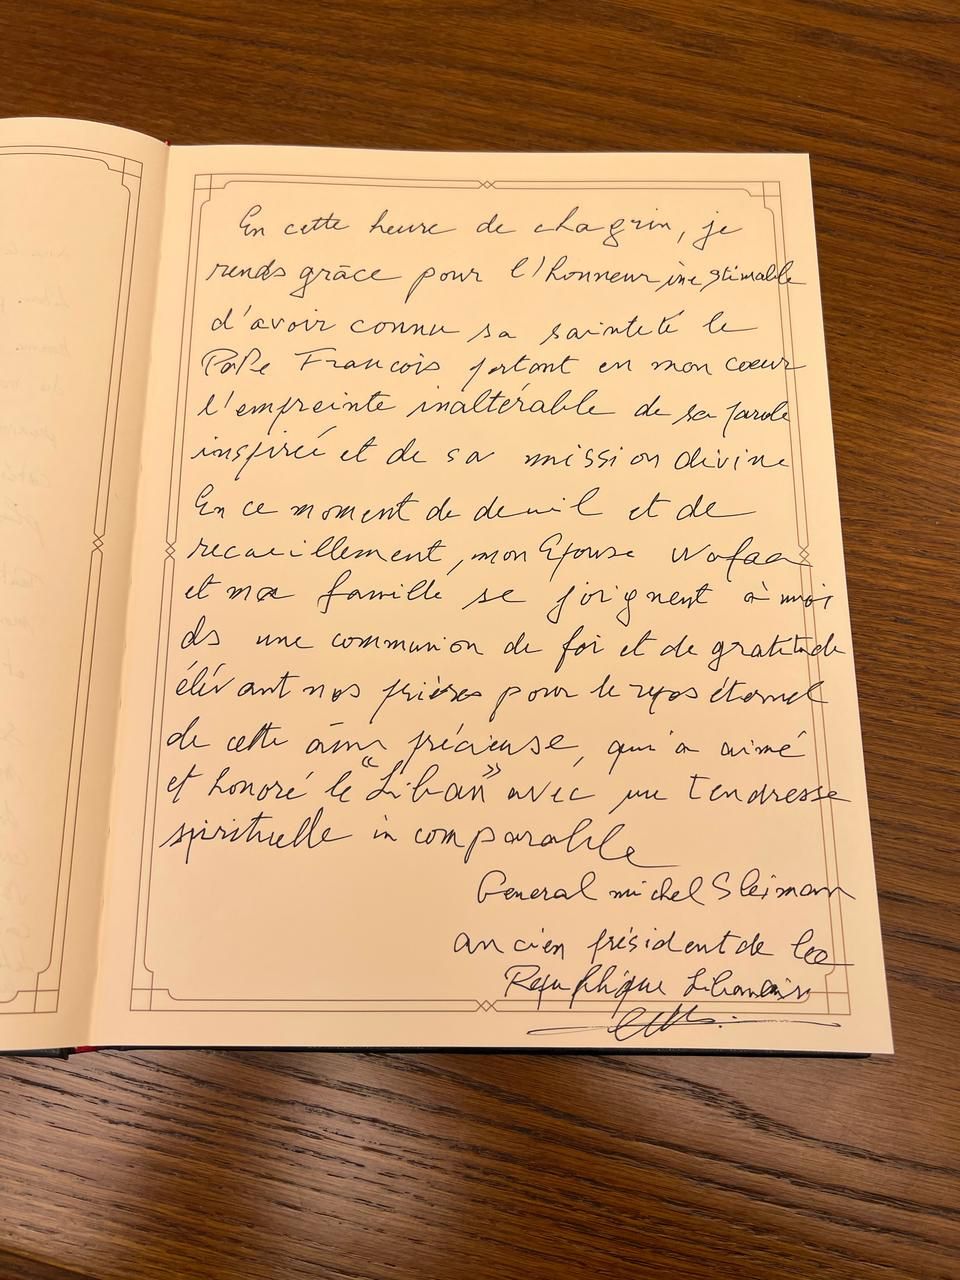 En cette heure de chagrin, je
rends grâce pour l'honneur inestimable
d'avoir connu sa sainteté le
PaPe Francois portant en mon coeur
l'empreinte inaltérable de sa parole
inspirée et de sa mission divine
En ce moment de deuil et de
recueillement, mon Epouse Wafaa
et ma famille se joignent à moi
ds une communion de foi et de gratitude
élevant nos prières pour le repos éternel
de cette âme précieuse, qui a aimé
et honoré le "Liban" avec une tendresse
spirituelle incomparable
General michel Sleiman
ancien président de la
République Libanaise